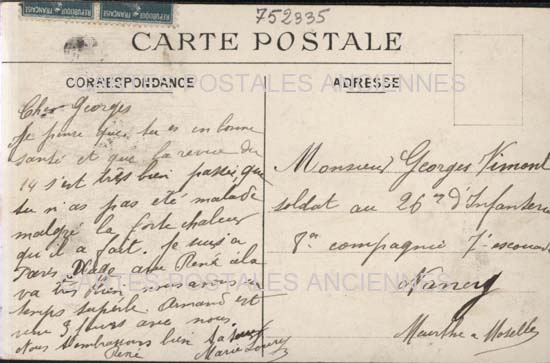 RÉPUBLIQUE FRANÇAISE
RÉPUBLIQUE FRANÇAISE
752335
CARTE POSTALE
CORRESPONDANCE
ADRESSE
CARTES POSTALES ANCIENNES
CARTES POSTALES ANCIENNES
Cher Georges
Je pense que tu es en bonne
santé et que la revue du
14 s'est très bien passée, que
tu n'as pas eté malade
malgré la forte chaleur
qu'il a fait. Je suis à
Paris Plage avec René cela
va très bien nous avons un
temps superbe Armand est
venu 3 jours avec nous
Nous t'embrassons bien
René Marie Louise
Monsieur Georges Vimont
soldat au 26e d'Infanterie
8e compagnie 7e escouade
Nancy
Meurthe & Moselle